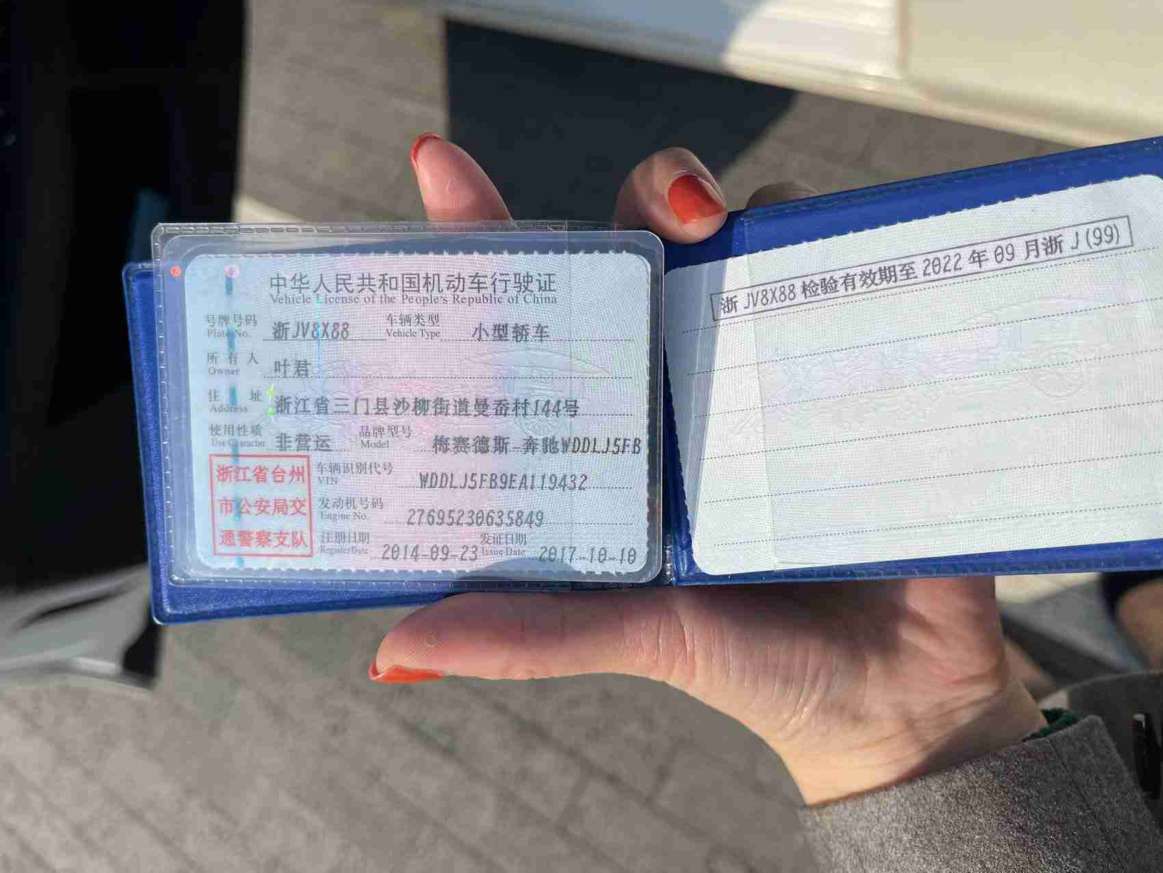 中华人民共和国机动车行驶证
Vehicle License of the People's Republic of China
号牌号码 浙JV8X88 车辆类型 小型轿车
Plate No. Vehicle Type
所有人 叶君
Owner
住址 浙江省三门县沙柳街道曼岙村144号
Address
使用性质 非营运 品牌型号 梅赛德斯-奔驰WDDLJ5FB
Use Character Model
车辆识别代号 WDDLJ5FB9EA119432
VIN
发动机号码 27695230635849
Engine No.
注册日期 2014-09-23 发证日期 2017-10-10
Register Date Issue Date
浙江省台州
市公安局交
通警察支队
浙JV8X88 检验有效期至 2022 年 09 月浙 J(99)